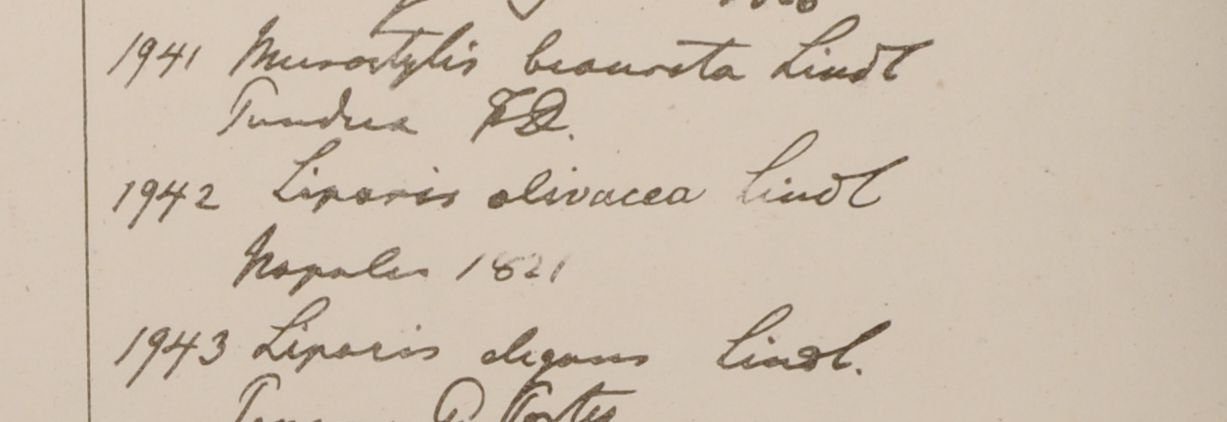 1941 Microstylis Lindl
Tundua F.D.
1942 Liparis olivacea Lindl
Napalia 1821
1943 Liparis elegans Lindl.